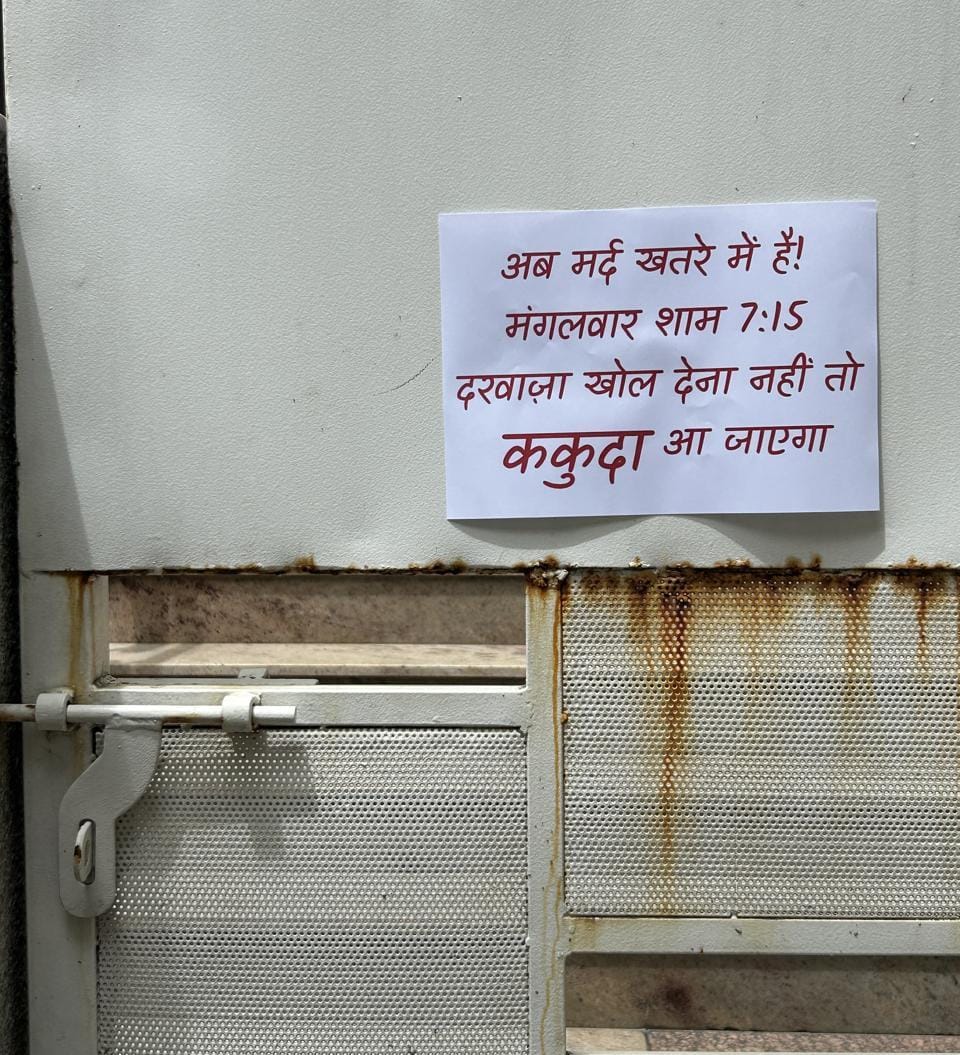 अब मर्द खतरे में है!
मंगलवार शाम 7:15
दरवाज़ा खोल देना नहीं तो
ककुदा आ जाएगा